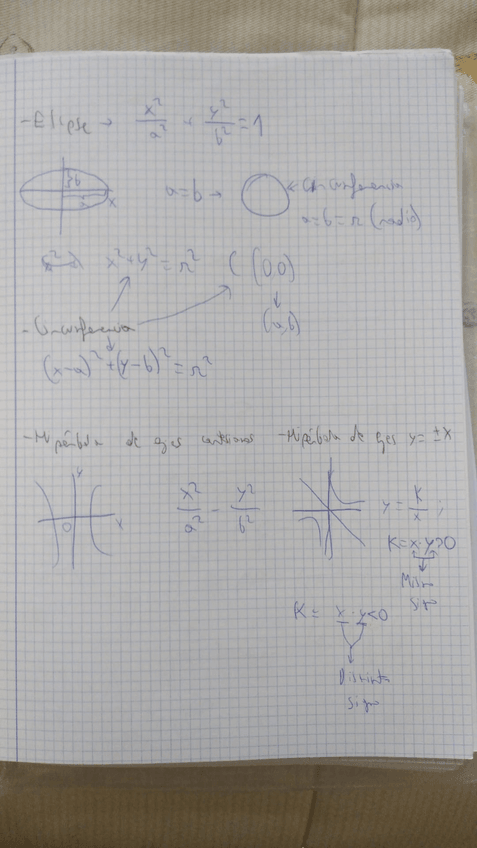 - Elipse → x²/a² + y²/b² = 1
b
a x
a=b → ← Circunferencia
a=b=r (radio)
x²+y²=r² C (0,0)
(a,b)
- Circunferencia
(x-a)² + (y-b)² = r²
- Hipérbola de ejes cartesianos - Hipérbola de ejes y = ±x
y
O x
x²/a² - y²/b² y = K/x ;
K = x·y>0
Mismo
signo
K = x·y<0
Distinto
signo